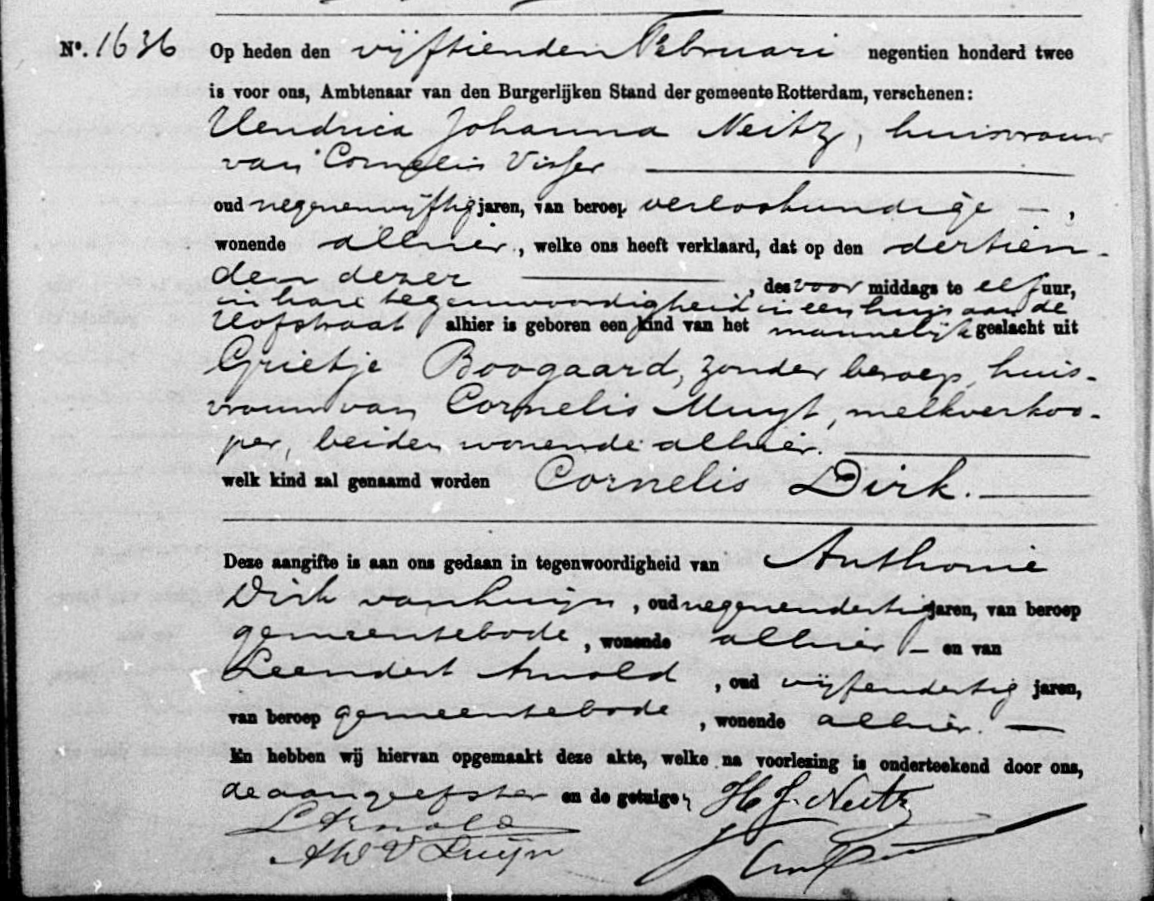 Nº. 1636 Op heden den vijftienden Februari negentien honderd twee
is voor ons, Ambtenaar van den Burgerlijken Stand der gemeente Rotterdam, verschenen:
Hendrica Johanna Neitz, huisvrouw
van Cornelis Visser
oud negenenvijftig jaren, van beroep verloskundige,
wonende alhier, welke ons heeft verklaard, dat op den dertien-
den dezer, des voormiddags te elf uur,
in hare tegenwoordigheid in een huis aan de
Hofstraat alhier is geboren een kind van het mannelijk geslacht uit
Grietje Boogaard, zonder beroep, huis-
vrouw van Cornelis Muyt, melkverkoo-
per, beiden wonende alhier.
welk kind zal genaamd worden Cornelis Dirk.
Deze aangifte is aan ons gedaan in tegenwoordigheid van Anthonie
Dirk van Luijn, oud negenendertig jaren, van beroep
gemeentebode, wonende alhier en van
Leendert Arnold, oud vijfendertig jaren,
van beroep gemeentebode, wonende alhier.
En hebben wij hiervan opgemaakt deze akte, welke na voorlezing is onderteekend door ons,
de aangeefster en de getuigen, H J Neitz
L Arnold
AD V Luijn